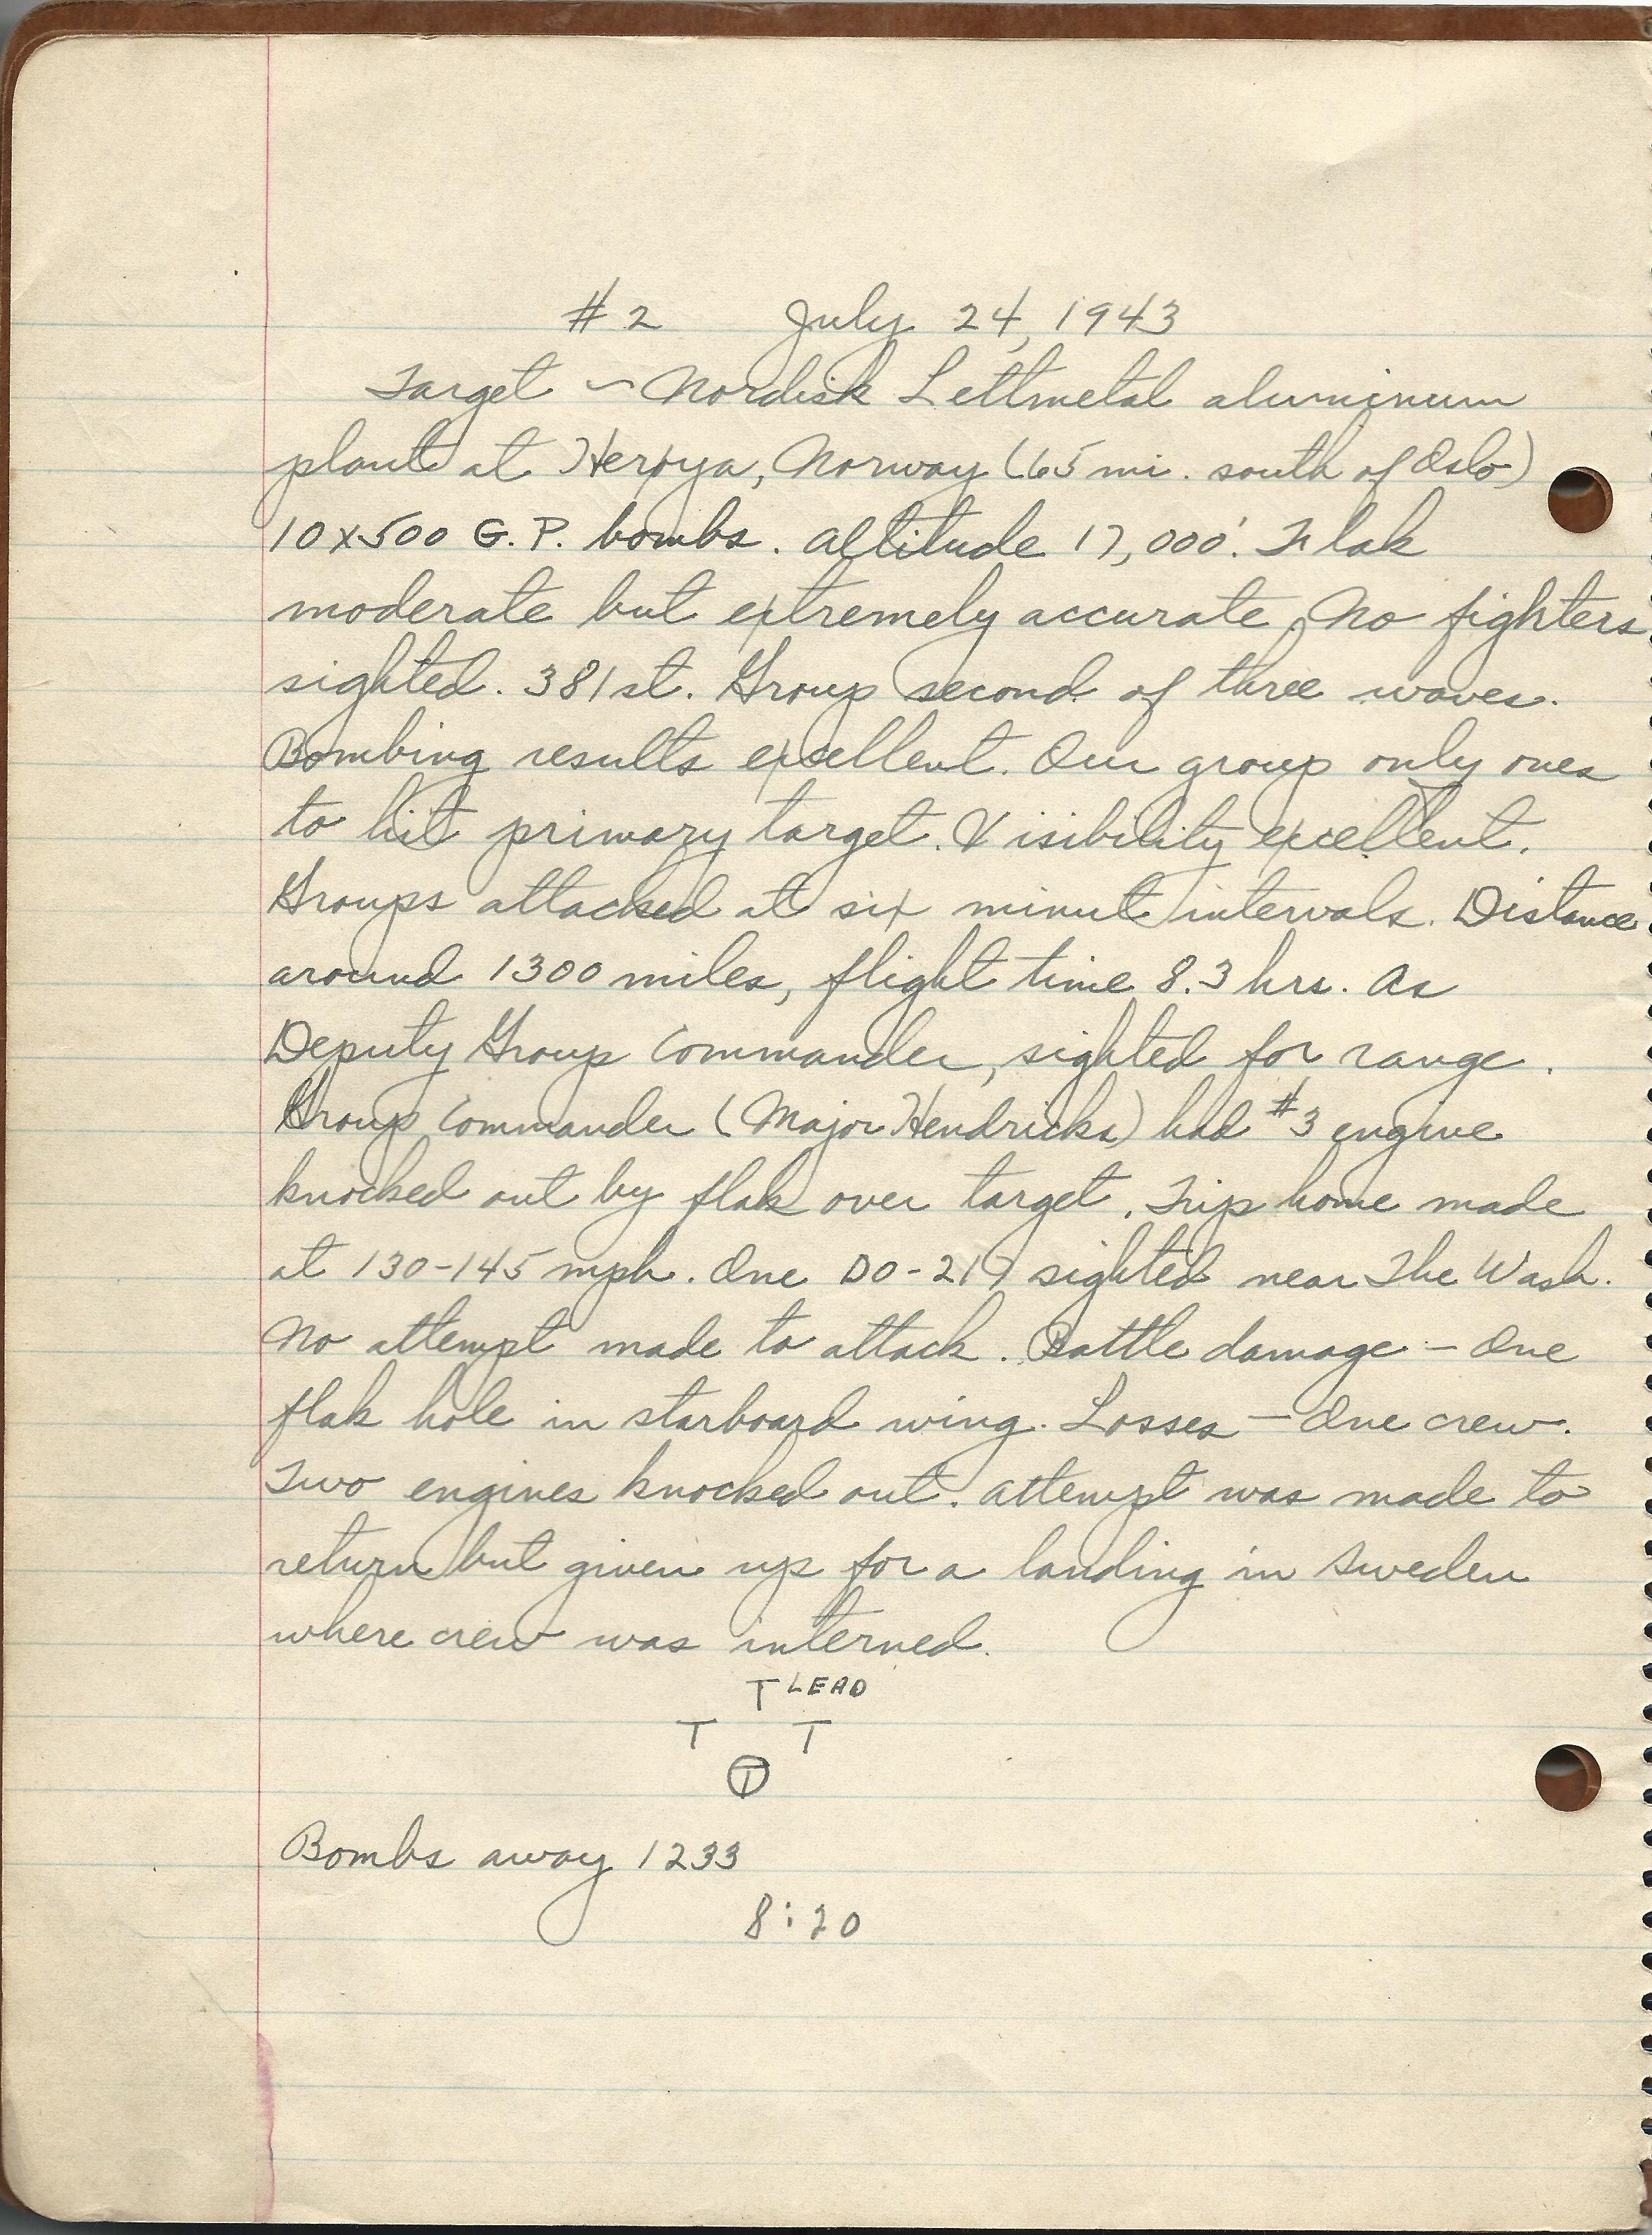 #2 July 24, 1943
Target ~ Nordisk Lettmetal aluminum
plant at Herøya, Norway (65 mi. south of Oslo)
10x500 G.P. bombs. Altitude 17,000'. Flak
moderate but extremely accurate, No fighters
sighted. 381st. Group second of three waves.
Bombing results excellent. Our group only ones
to hit primary target. Visibility excellent.
Groups attacked at six minute intervals. Distance
around 1300 miles, flight time 8.3 hrs. As
Deputy Group Commander, sighted for range.
Group Commander (Major Hendricks) had #3 engine
knocked out by flak over target. Trip home made
at 130-145 mph. One DO-217 sighted near The Wash.
No attempt made to attack. Battle damage - One
flak hole in starboard wing. Losses - One crew.
Two engines knocked out. Attempt was made to
return but given up for a landing in Sweden
where crew was interned.
T LEAD
T T
T
Bombs away 1233
8:20